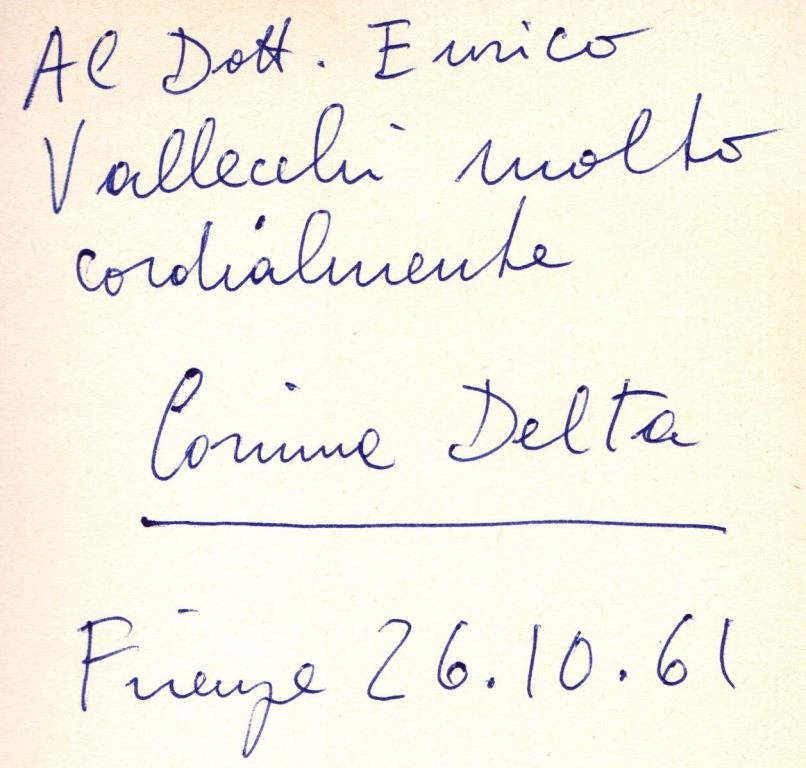 Al Dott. Enrico
Vallecchi molto
cordialmente
Corinne Delta
Firenze 26.10.61